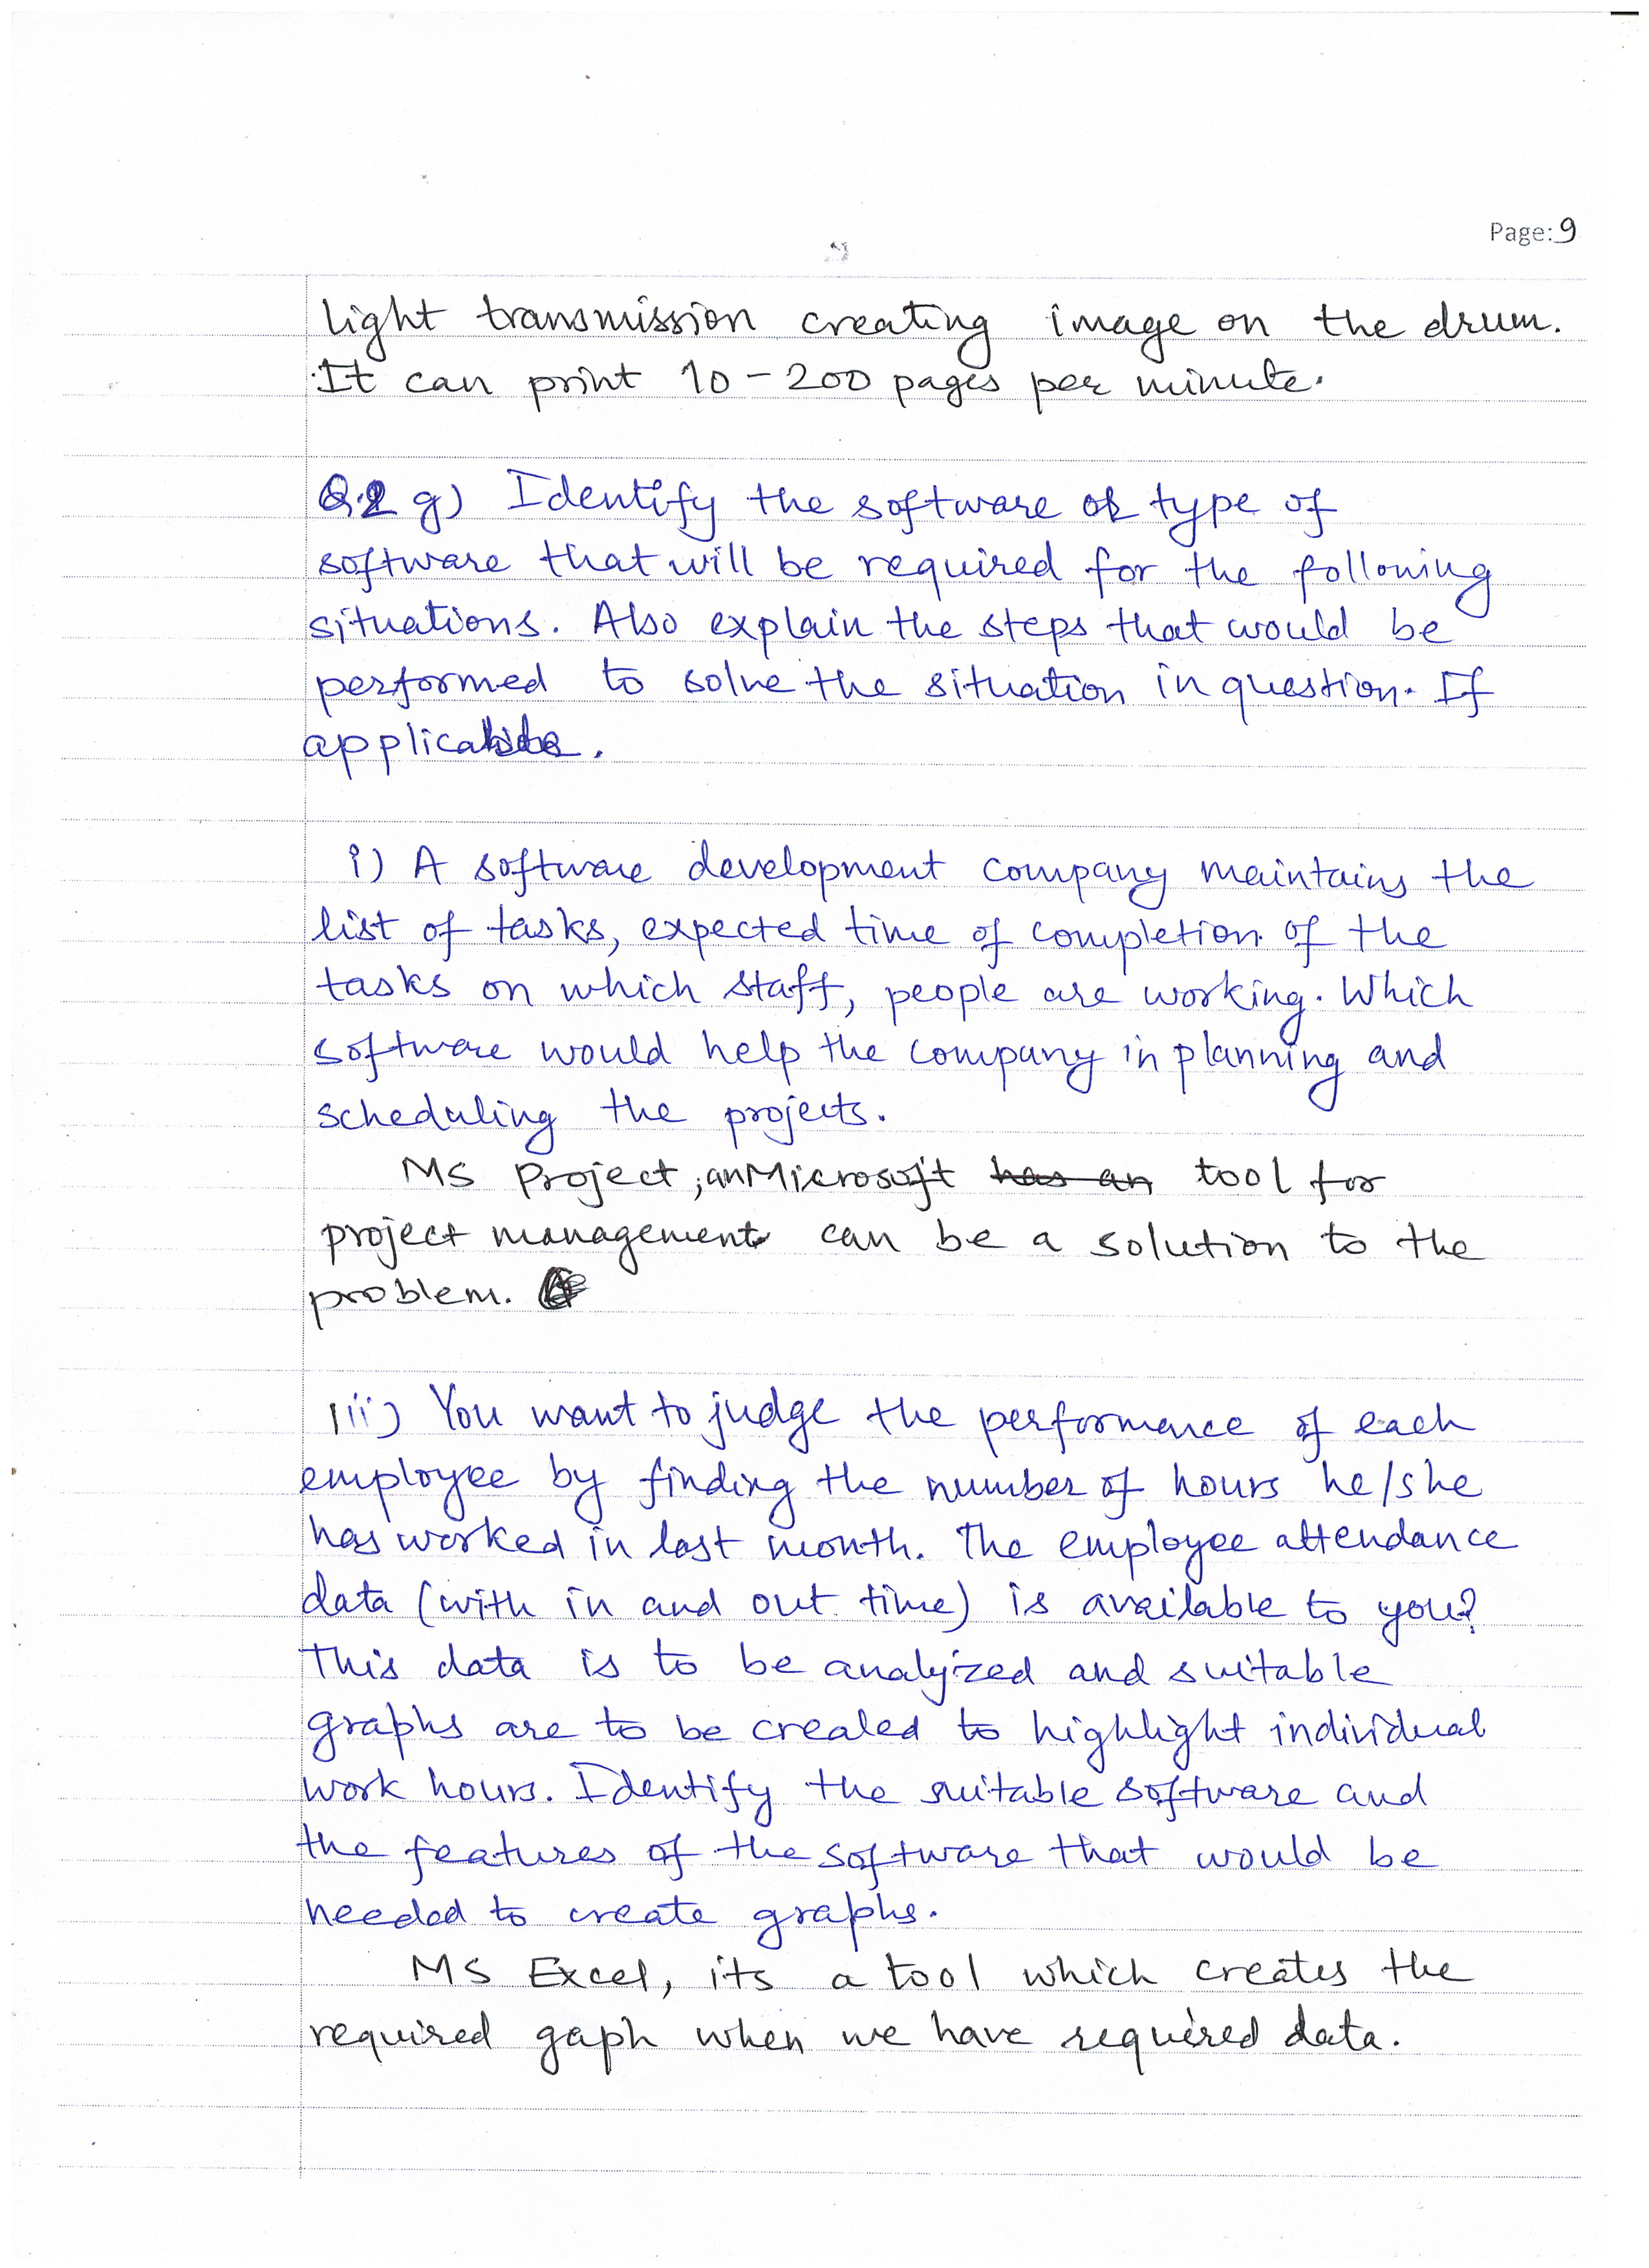 Page: 9
light transmission creating image on the drum.
It can print 10-200 pages per minute.
Q.2 g) Identify the software or type of
software that will be required for the following
situations. Also explain the steps that would be
performed to solve the situation in question. If
applicable.
i) A software development company maintains the
list of tasks, expected time of completion of the
tasks on which staff, people are working. Which
software would help the company in planning and
scheduling the projects.
MS Project, an Microsoft has an tool for
project management can be a solution to the
problem.
iii) You want to judge the performance of each
employee by finding the number of hours he/she
has worked in last month. The employee attendance
data (with in and out time) is available to you?
This data is to be analyized and suitable
graphs are to be created to highlight individual
work hours. Identify the suitable software and
the features of the software that would be
needed to create graphs.
MS Excel, its a tool which creates the
required gaph when we have required data.